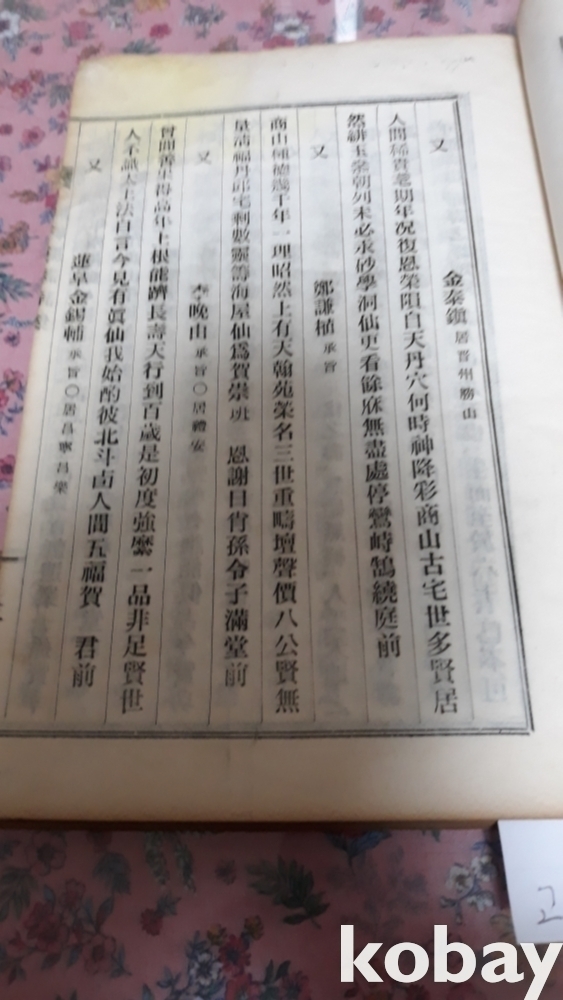 又 金秦鎭 居晋州勝山
人間稀貴耋期年况復恩榮隕自天丹穴何時神降彩商山古宅世多賢居
然緋玉榮朝列未必求砂學洞仙更看餘庥無盡處停鸞峙鵠繞庭前
又 鄭謙植 承旨
商山種德幾千年一理昭然上有天翰苑榮名三世重疇壇聲價八公賢無
量淸福丹邱宅剩數靈籌海屋仙爲賀崇班 恩謝日肖孫令子滿堂前
又 李晚由 承旨〇居禮安
曾聞善果得高年上根能躋長壽天行到百歲是初度強縻一品非足賢世
人不識太上法自言今見有眞仙我始酌彼北斗卣人間五福賀 君前
又 蓮皐金錫輔 承旨〇居昌寧昌樂
고
kobay